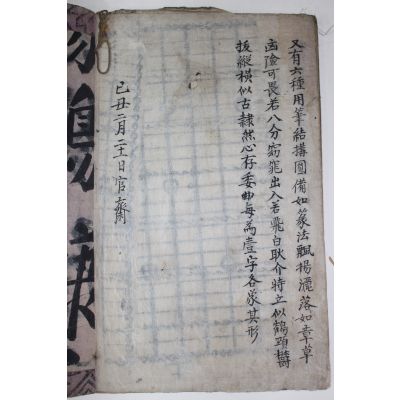 又有六種用筆結搆圓備如篆法飄揚灑落如章草
凶險可畏若八分窈窕出入若飛白耿介特立似鶴頭鬱
拔縱橫似古隷然心存委曲每為壹字各象其形
己丑二月二十日官齋